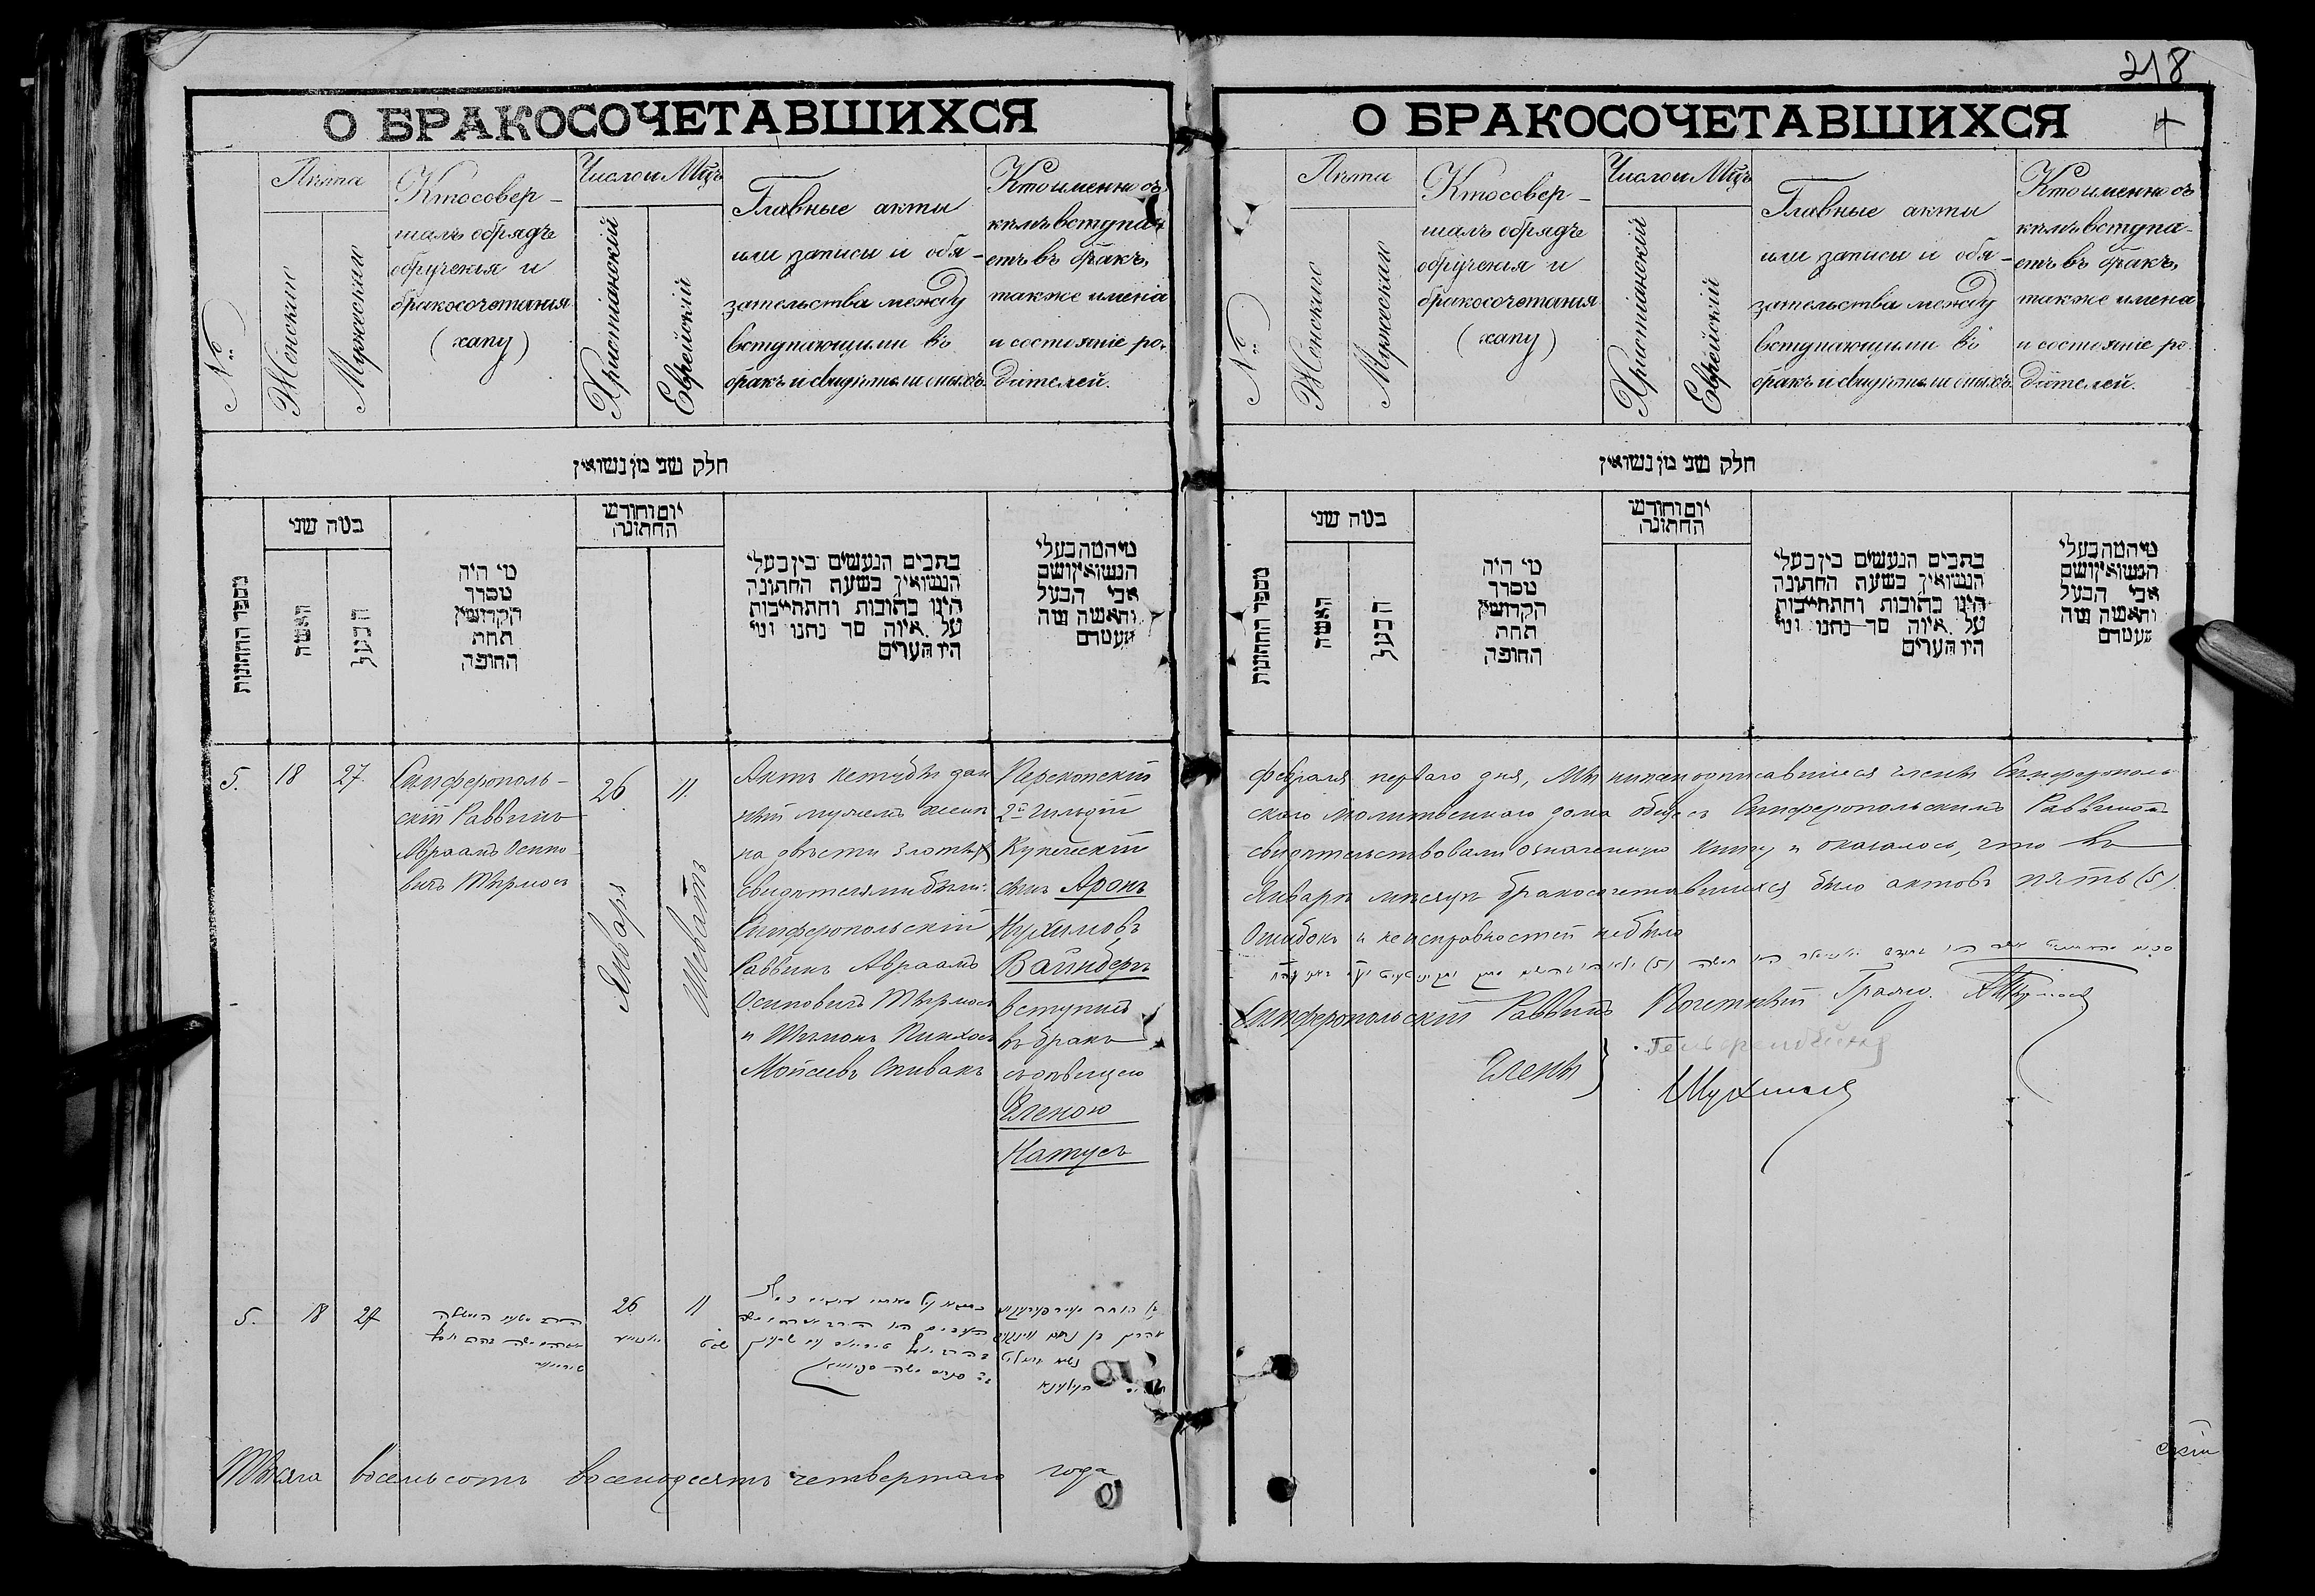 218
4
О БРАКОСОЧЕТАВШИХСЯ
№
Лѣта
Женскаго
Мужескаго
Кто совер-
шалъ обрядъ
обрученія и
бракосочетанія
(хапу)
Число и Мцъ
Христіанскій
Еврейскій
Главные акты
или записи и обя-
зательства между
вступающими въ
бракъ и свидѣтели оныхъ.
Кто именно съ
кѣмъ вступа-
етъ въ бракъ,
также имена
и состояніе ро-
дителей.
חלק שני מן נשואין
מספר החתונות
במה שני
האשה
הבעל
מי היה
מסדר
הקדושין
תחת
החופה
יום וחודש
החתונה
כתבים הנעשים בין בעלי
הנשואין בשעת החתונה
היינו כתובות והתחייבות
על איזה סך נתנו ומי
היו העדים
מי המה בעלי
הנשואין ושם
אבי הבעל
והאשה ומה
מעמדם
5.
18
27.
Симферополь-
скій Раввинъ
Авраамъ Осипо-
вичъ
26.
Января
11.
Шеватъ
Актъ кетубы дан
ный мужемъ женѣ
на двѣсти злотыхъ
Свидѣтелями были:
Симферопольскій
Раввинъ Авраамъ
Осиповичъ
и Шимонъ Пинхосъ
Мойсеевъ Спивакъ
Перекопскій
2й Гильдіи
Купеческій
сынъ Аронъ
Нухимовъ
Вайнберъ
вступилъ
въ бракъ
съ дѣвицею
Еленою
Натусъ
5.
18
27
26
11
שבט
Тысяча восемьсотъ восемьдесятъ четвертаго года
О БРАКОСОЧЕТАВШИХСЯ
№
Лѣта
Женскаго
Мужескаго
Кто совер-
шалъ обрядъ
обрученія и
бракосочетанія
(хапу)
Число и Мцъ
Христіанскій
Еврейскій
Главные акты
или записи и обя-
зательства между
вступающими въ
бракъ и свидѣтели оныхъ.
Кто именно съ
кѣмъ вступа-
етъ въ бракъ,
также имена
и состояніе ро-
дителей.
חלק שני מן נשואין
מספר החתונות
במה שני
האשה
הבעל
מי היה
מסדר
הקדושין
תחת
החופה
יום וחודש
החתונה
כתבים הנעשים בין בעלי
הנשואין בשעת החתונה
היינו כתובות והתחייבות
על איזה סך נתנו ומי
היו העדים
מי המה בעלי
הנשואין ושם
אבי הבעל
והאשה ומה
מעמדם
февраля перваго дня, Мы нижеподписавшіеся члены Симферополь
скаго Молитвеннаго дома обще съ Симферопольскимъ Раввиномъ
свидѣтельствовали означенную книгу и оказалось, что въ
Январѣ мѣсяцѣ бракосочетавшихся было актовъ пять (5)
Ошибокъ и неисправностей небыло
Симферопольскій Раввинъ Почетный Гражд.
Члены